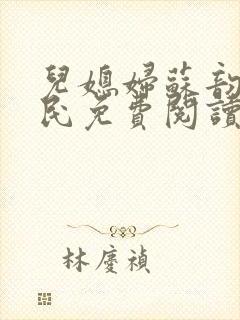 兒媳婦蘇韵
民免費閱讀
林慶禎